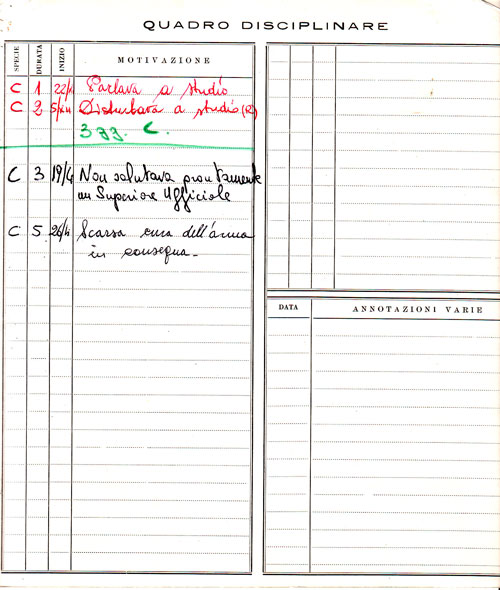 QUADRO DISCIPLINARE
SPECIE DURATA INIZIO MOTIVAZIONE
C 1 22/4 Parlava a studio
C 2 5/ Disturbava a studio (R)
3 gg. C.
C 3 19/4 Non salutava prontamente
un Superiore Ufficiale
C 5 26/4 Scarsa cura dell'arma
in consegna.
DATA ANNOTAZIONI VARIE